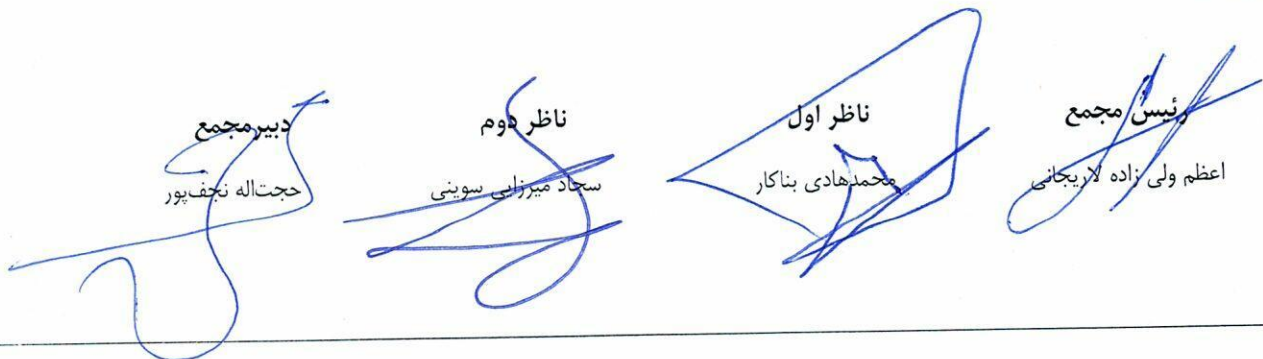 رئیس مجمع
اعظم ولی زاده لاریجانی
ناظر اول
محمدهادی بناکار
ناظر دوم
سجاد میرزایی سوینی
دبیرمجمع
حجت‌اله نجف‌پور